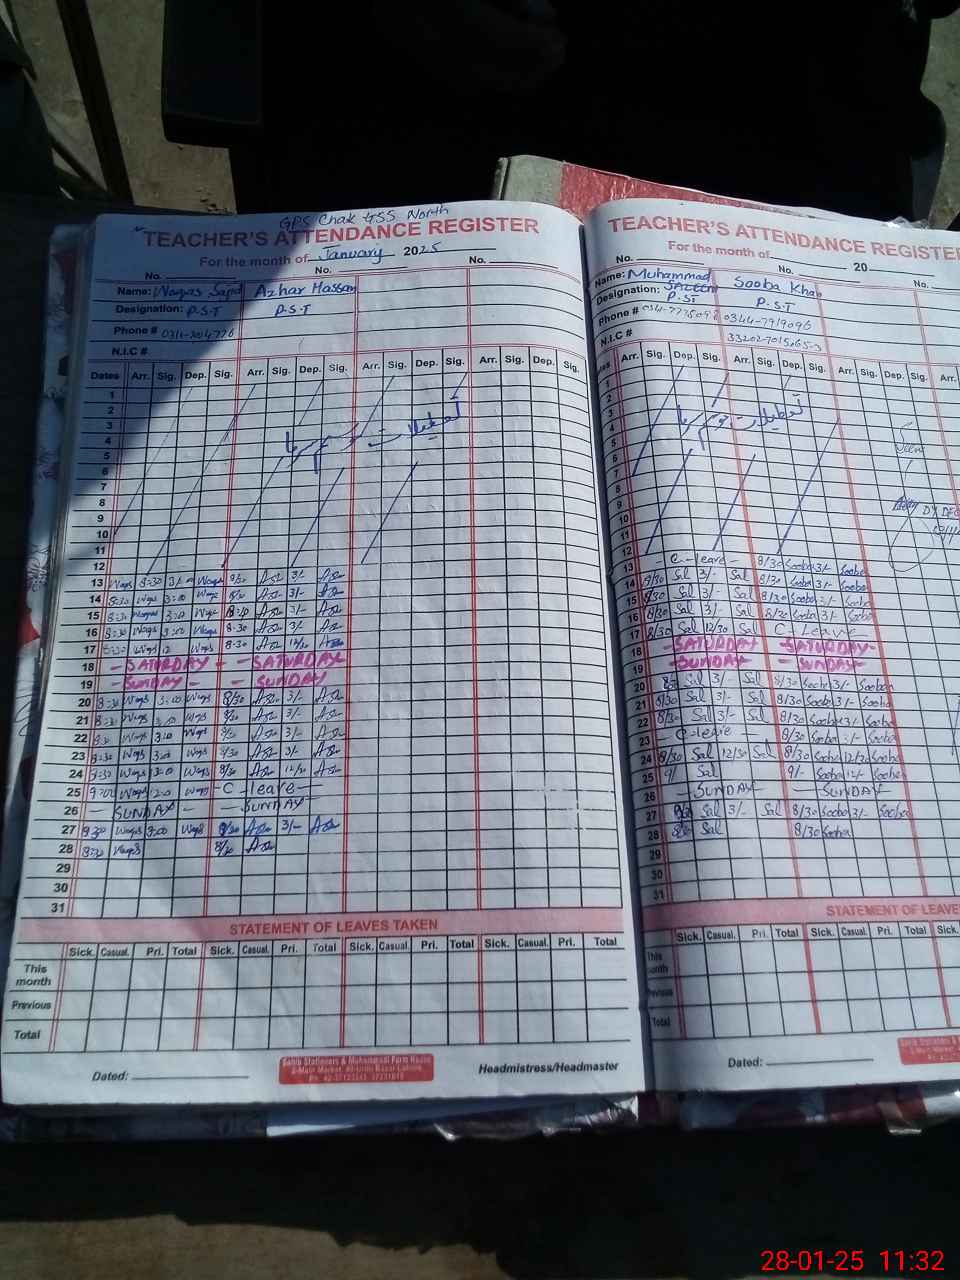 GPS Chak 455 North
TEACHER'S ATTENDANCE REGISTER
For the month of January 2025
No. No. No.
Name: Waqas Sajid Azhar Hassan
Designation: P.S.T P.S.T
Phone #
N.I.C #
Dates Arr. Sig. Dep. Sig. Arr. Sig. Dep. Sig. Arr. Sig. Dep. Sig. Arr. Sig. Dep. Sig.
1
2
تعطیلات موسم سرما
3
4
5
6
7
8
9
10
11
12
13 Waqs 8:30 3/-00 Waqs 8/30 3/-
14 8:30 Waqs 3:00 Waqs 8/30 3/-
15 8:30 Waqas 3:00 Waqs 8:30 3/-
16 8:30 Waqs 3:00 Waqs 8-30 3/-
17 8:30 Waqs 12 Waqs 8-30 12/30
18 - SATURDAY - - SATURDAY-
19 - SUNDAY - - SUNDAY
20 8:30 Waqs 3:00 Waqs 8/30 3/-
21 8:30 Waqs 3:00 Waqs 8/30 3/-
22 8:30 Waqs 3:00 Waqs 8/30 3/-
23 8:30 Waqs 3:00 Waqs 8/30 3/-
24 8:30 Waqs 12:0 Waqs 8/30 12/30
25 9:00 Waqs 12:0 Waqs -C - leave -
26 - SUNDAY - - SUNDAY
27 8:30 Waqs 3:00 Waqs 8/30 3/-
28 8:30 Waqs 8/30
29
30
31
STATEMENT OF LEAVES TAKEN
Sick. Casual. Pri. Total Sick. Casual. Pri. Total Sick. Casual. Pri. Total Sick. Casual. Pri. Total
This month
Previous
Total
Dated:
Headmistress/Headmaster
TEACHER'S ATTENDANCE REGISTER
For the month of 20
No. No.
Name: Muhammad Saleem Sooba Khan
Designation: P.ST P.S.T
Phone # 0344-7919096
N.I.C # 
Arr. Sig. Dep. Sig. Arr. Sig. Dep. Sig. Arr. Sig. Dep. Sig. Arr.
1
2
3
تعطیلات موسم سرما
4
5
6
7
8
9
10
11
12
13 - C - leave - 8/30 Sooba 3/- Sooba
14 8/30 Sal 3/- Sal 8/30 Sooba 3/- Sooba
15 8/30 Sal 3/- Sal 8/30 Sooba 3/- Sooba
16 8/30 Sal 3/- Sal 8/30 Sooba 3/- Sooba
17 8/30 Sal 12/30 Sal C - Leave
18 -SATURDAY -SATURDAY-
19 -SUNDAY - SUNDAY-
20 8/30 Sal 3/- Sal 8/30 Sooba 3/- Sooba
21 8/30 Sal 3/- Sal 8/30 Sooba 3/- Sooba
22 8/30 Sal 3/- Sal 8/30 Sooba 3/- Sooba
23 C-leave - 8/30 Sooba 3/- Sooba
24 8/30 Sal 12/30 Sal 8/30 Sooba 12/30 Sooba
25 9/ Sal 9/- Sooba 12/- Sooba
26 - SUNDAY - SUNDAY
27 8/30 Sal 3/- Sal 8/30 Sooba 3/- Sooba
28 8/30 Sal 8/30 Sooba
29
30
31
STATEMENT OF LEAVE
Sick. Casual. Pri. Total Sick. Casual. Pri. Total Sick.
This month
Previous
Total
Dated:
28-01-25 11:32